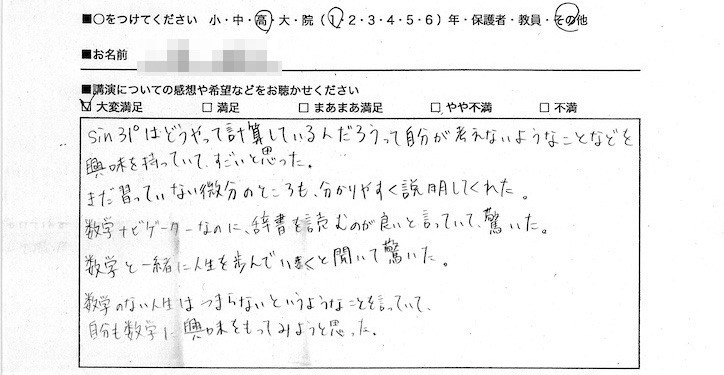 ■○をつけてください 小・中・高・大・院（1・2・3・4・5・6）年・保護者・教員・その他
■お名前
■講演についての感想や希望などをお聴かせください
☑ 大変満足 □ 満足 □ まあまあ満足 □ やや不満 □ 不満
sin31°はどうやって計算しているんだろうって自分が考えないようなことなどを
興味を持っていて、すごいと思った。
まだ習っていない微分のところも、分かりやすく説明してくれた。
数学ナビゲーターなのに、辞書を読むのが良いと言っていて、驚いた。
数学と一緒に人生を歩んでいくと聞いて驚いた。
数学のない人生はつまらないというようなことを言っていて、
自分も数学に興味をもってみようと思った。